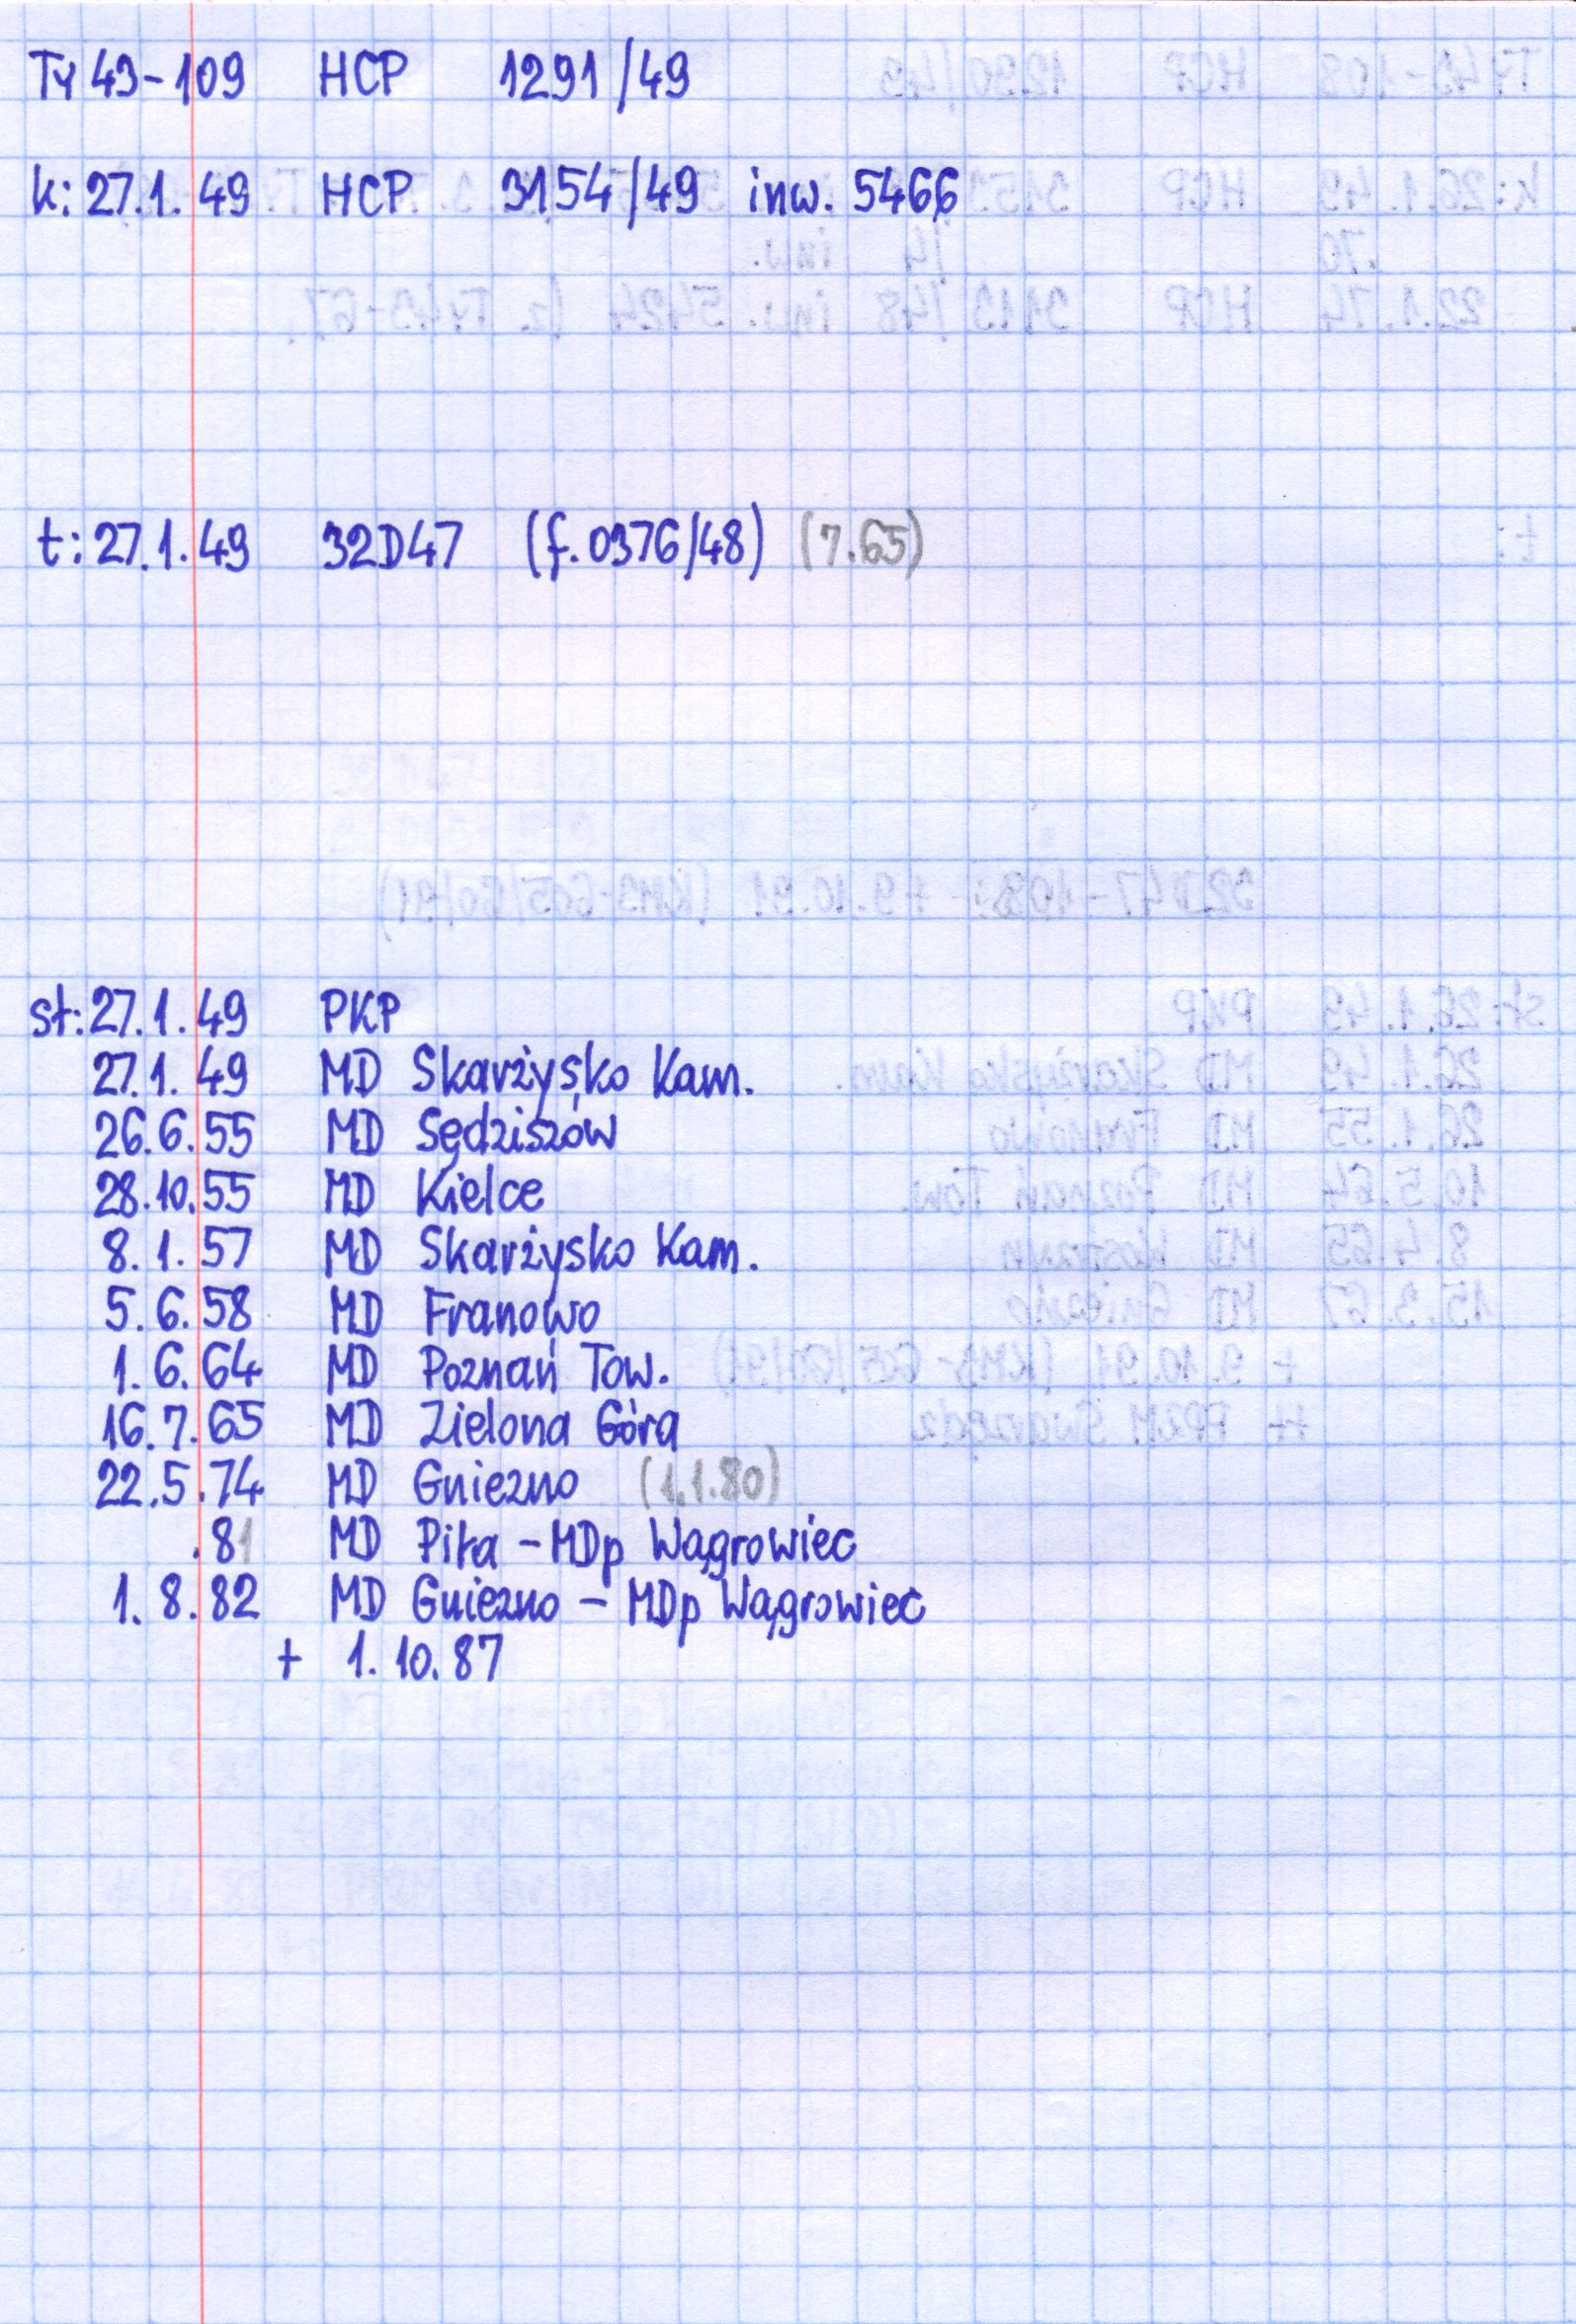 Ty 43-109 HCP 1291/49
k: 27.1.49 HCP 3154/49 inw. 5466
t: 27.1.49 32D47 (f.0376/48) (7.65)
st: 27.1.49 PKP
27.1.49 MD Skarżysko Kam.
26.6.55 MD Sędziszów
28.10.55 MD Kielce
8.1.57 MD Skarżysko Kam.
5.6.58 MD Franowo
1.6.64 MD Poznań Tow.
16.7.65 MD Zielona Góra
22.5.74 MD Gniezno (1.1.80)
.81 MD Piła - MDp Wągrowiec
1.8.82 MD Gniezno - MDp Wągrowiec
+ 1.10.87